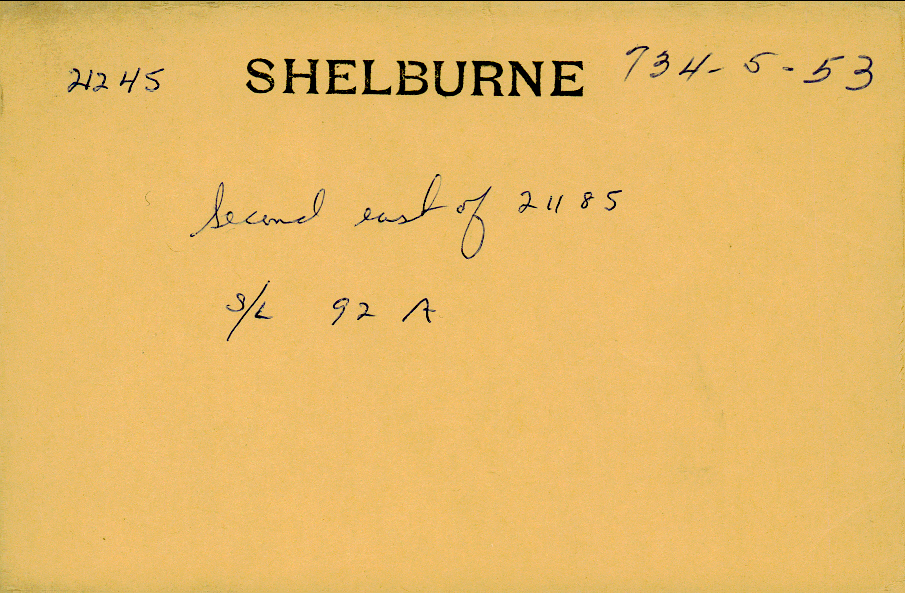 21245 SHELBURNE 734-5-53
Second east of 21185
S/L 92 A